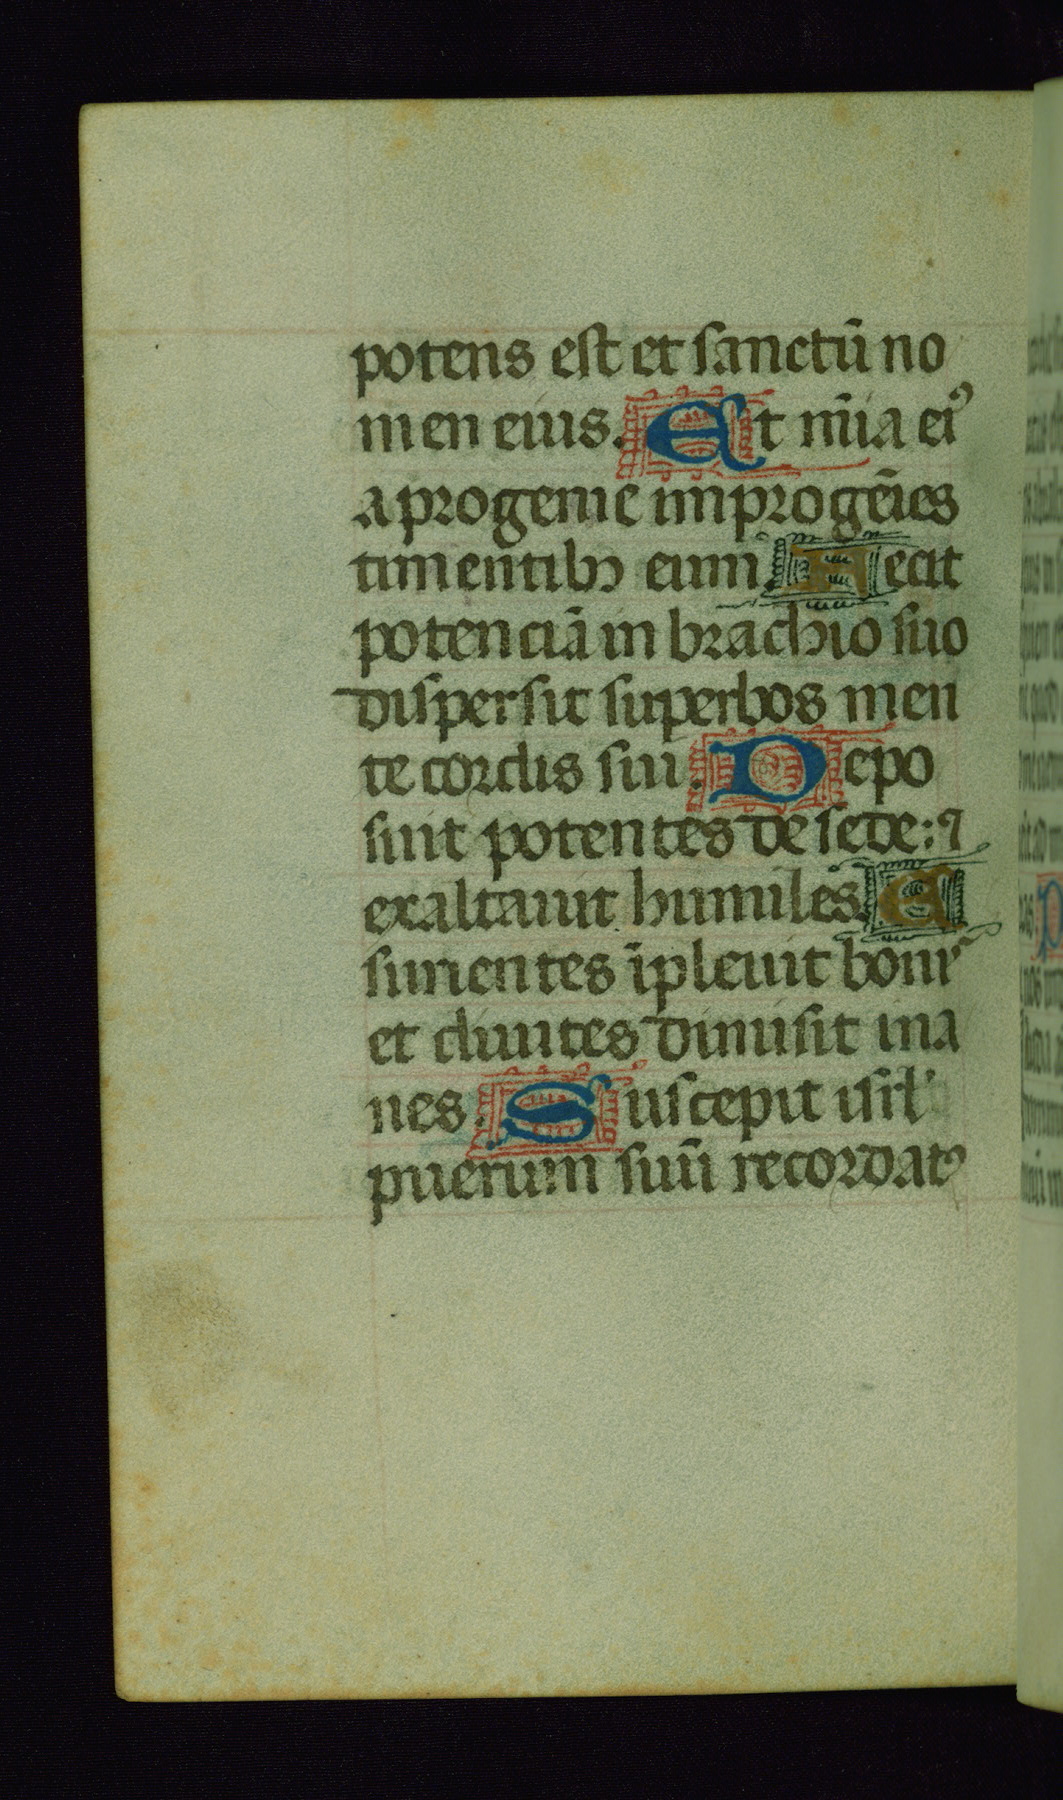 potens est et sanctū no
men eius. Et mīa ei⁹
a progenie inprogēies
timentibꝫ eum. Fecit
potenciā in brachio suo
dispersit superbos men
te cordis sui. Depo
suit potentes de sede: ⁊
exaltauit humiles. E
surientes īpleuit bonis
et diuites dimisit ina
nes. Suscepit isrl'
puerum suū recordat⁹